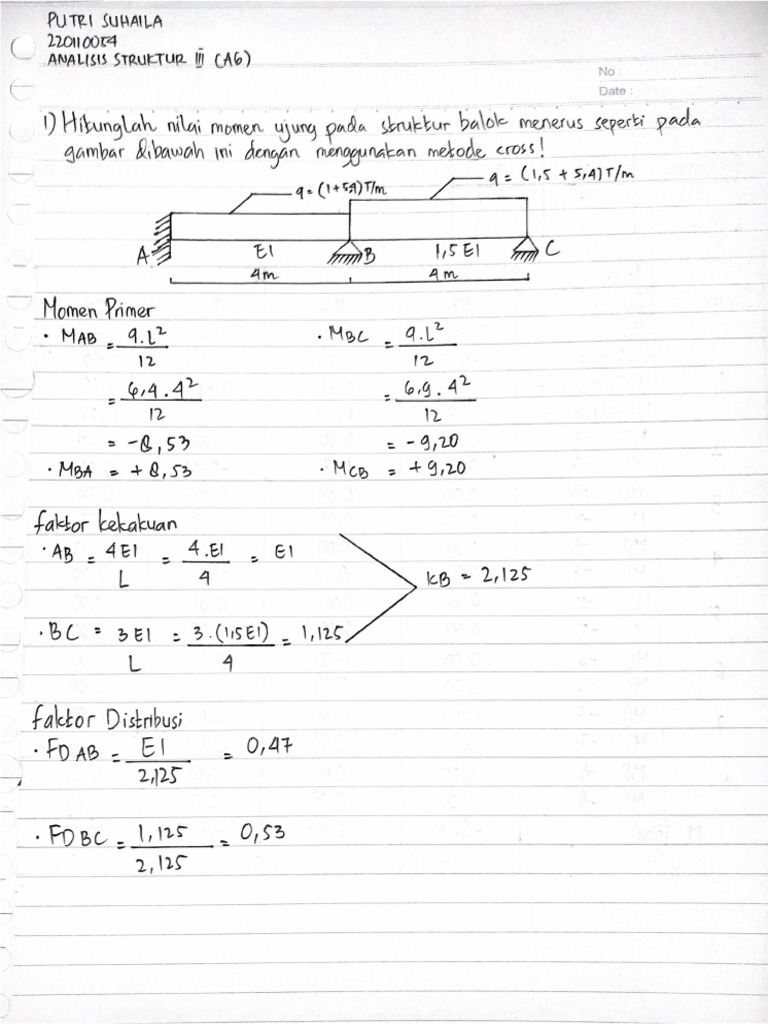 PUTRI SUHAILA
220110054
ANALISIS STRUKTUR III (A6)
No :
Date :
1) Hitunglah nilai momen ujung pada struktur balok menerus seperti pada
gambar dibawah ini dengan menggunakan metode cross!
q = (1+5,4) T/m
q = (1,5 + 5,4) T/m
A EI B 1,5 EI C
4m 4m
Momen Primer
· MAB = q.L² / 12
· MBC = q.L² / 12
= 6,4 . 4² / 12
= 6,9 . 4² / 12
= -8,53
= -9,20
· MBA = +8,53
· MCB = +9,20
faktor kekakuan
· AB = 4EI / L = 4.EI / 4 = EI
KB = 2,125
· BC = 3EI / L = 3.(1,5EI) / 4 = 1,125
faktor Distribusi
· FD AB = EI / 2,125 = 0,47
· FD BC = 1,125 / 2,125 = 0,53